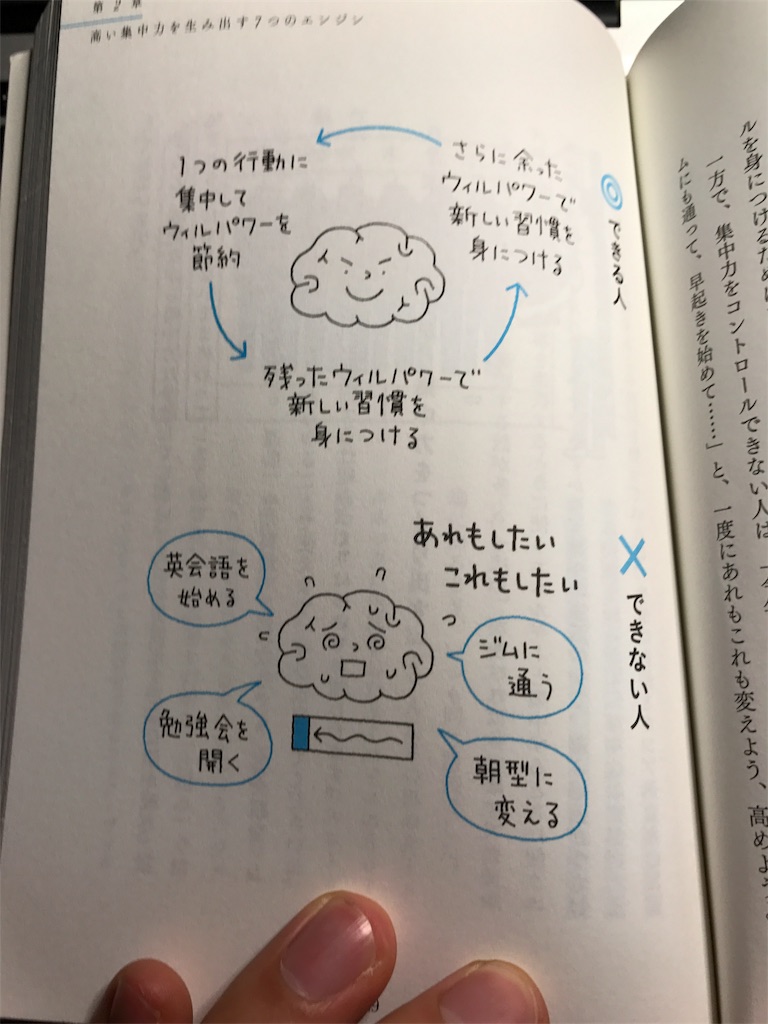 第2章
高い集中力を生み出す7つのエンジン
◎できる人
1つの行動に
集中して
ウィルパワーを
節約
残ったウィルパワーで
新しい習慣を
身につける
さらに余った
ウィルパワーで
新しい習慣を
身につける
×できない人
あれもしたい
これもしたい
英会話を
始める
ジムに
通う
勉強会を
開く
朝型に
変える
ルを身につけるため
一方で、集中力をコントロールできない人は
ムにも通って、早起きを始めて……」と、一度にあれもこれも変えよう、高めよう